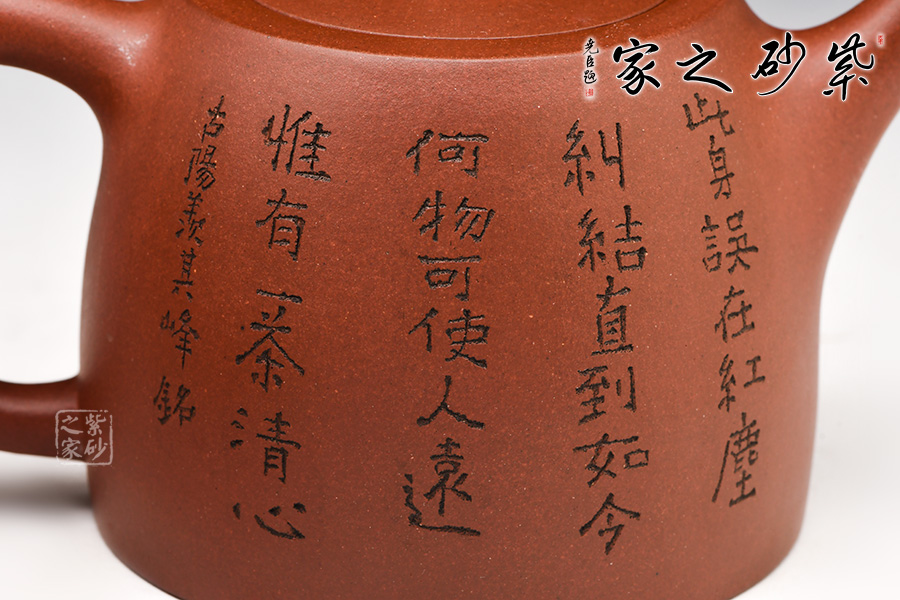 此身誤在紅塵
糾結直到如今
何物可使人遠
惟有一茶清心
古陽羨其峰銘
紫砂之家
堯臣題
紫砂之家